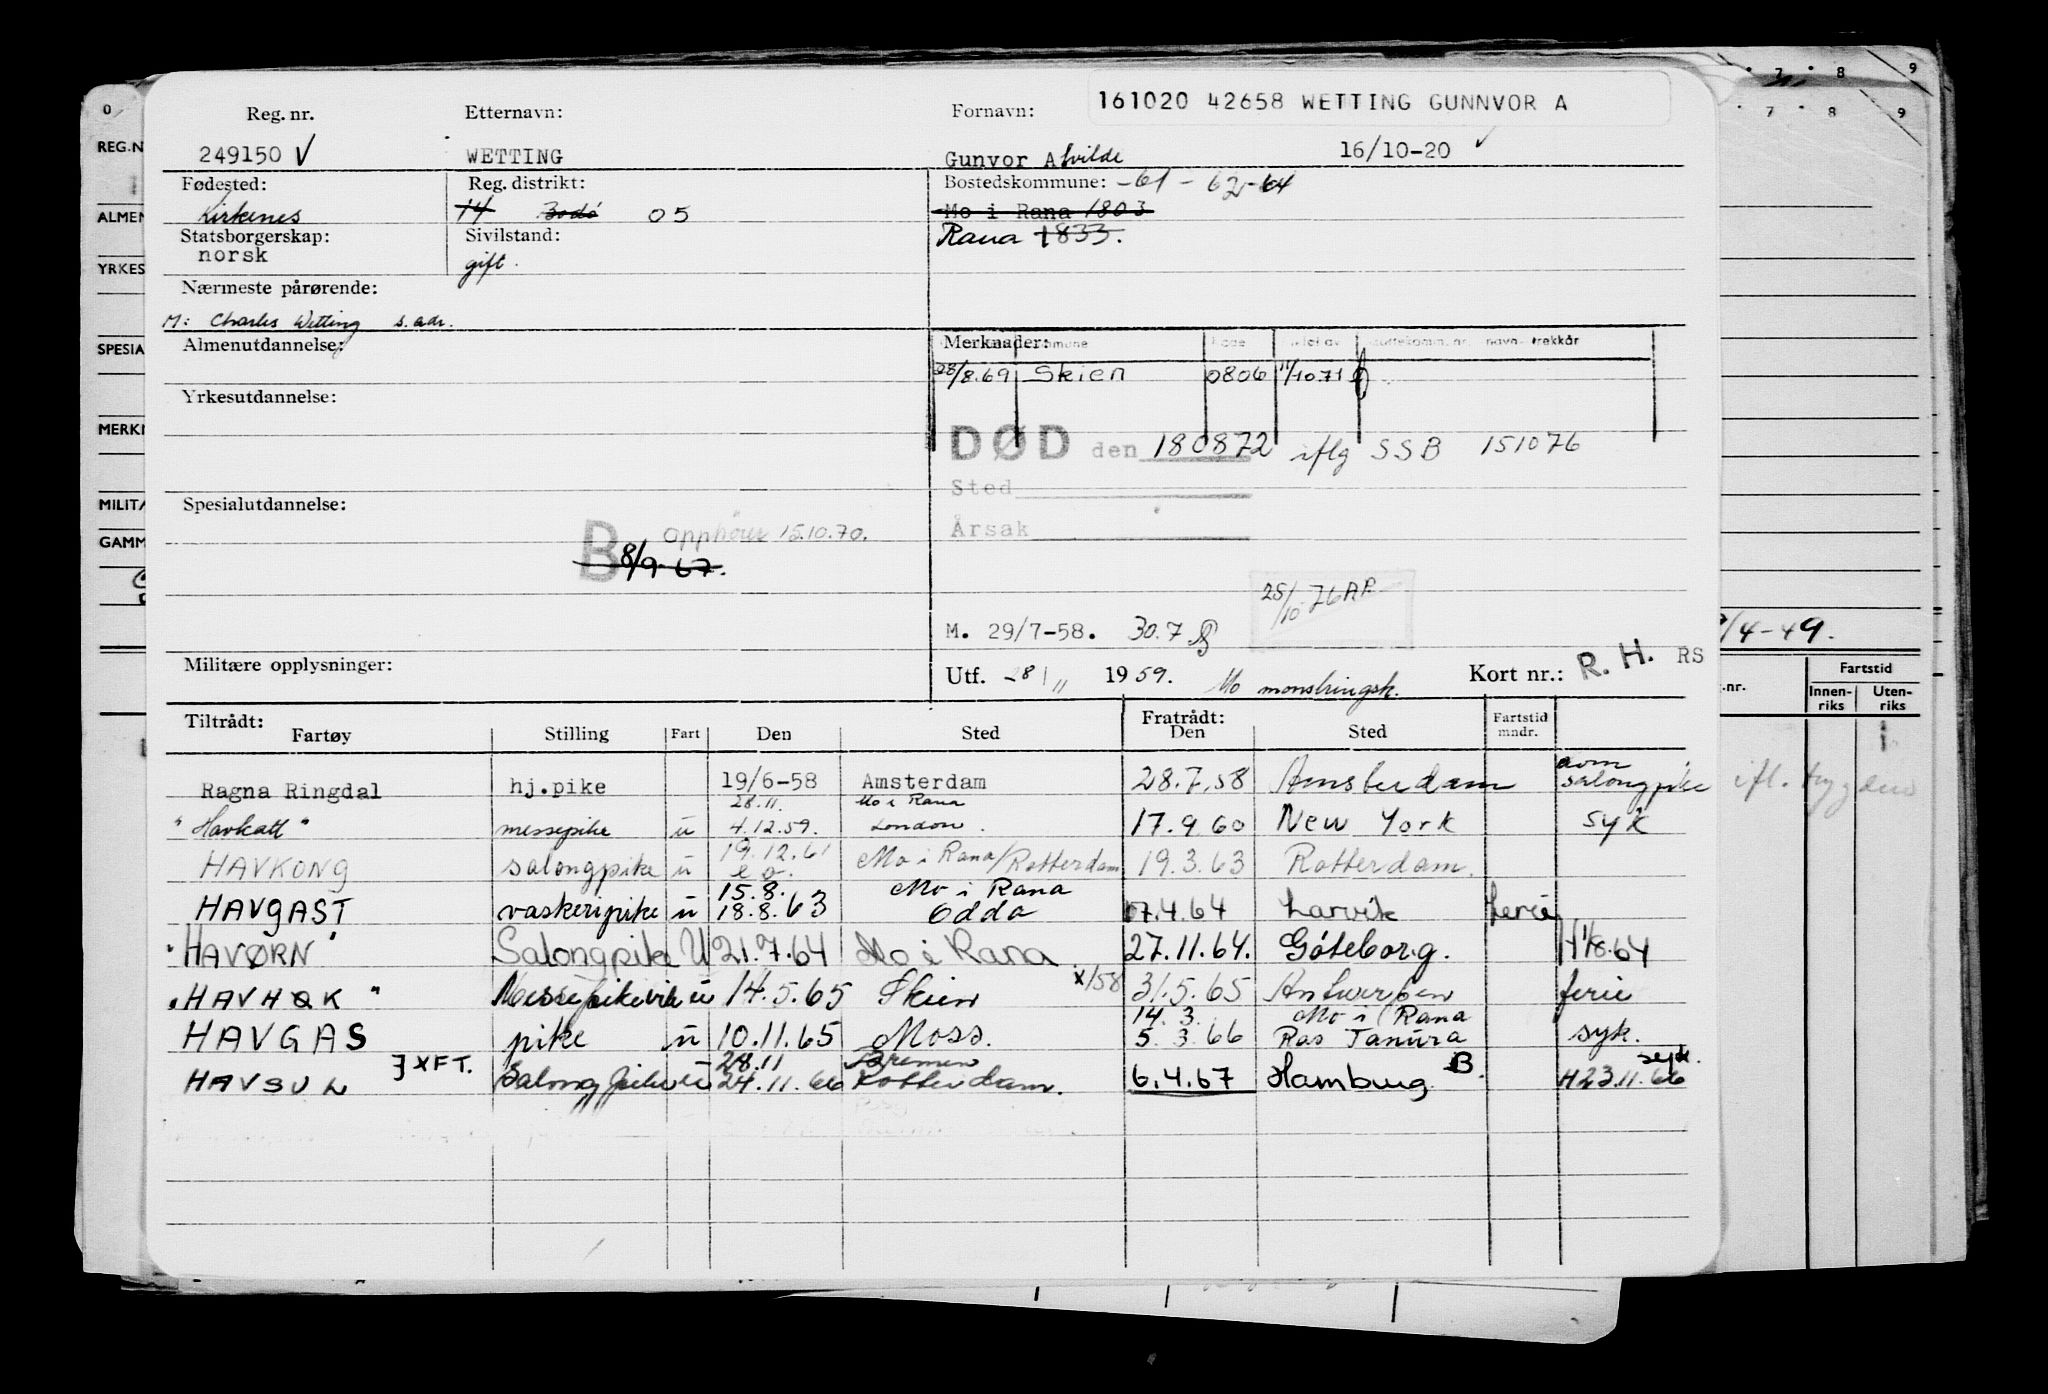 161020 42658 WETTING GUNNVOR A
Reg. nr. Etternavn: Fornavn:
249150 V WETTING Gunvor Alvilde 16/10-20
Fødested: Reg. distrikt: Bostedskommune: -61 - 62-64
Kirkenes 14 Bodø 05 Mo i Rana 1803
Statsborgerskap: Sivilstand: Rana 1833.
norsk gift.
Nærmeste pårørende:
M: Charles Wetting s. adr.
Almenutdannelse: Merknader: trekkår
28/8.69 Skien 0806 11/10.71
Yrkesutdannelse:
DØD den 180872 iflg SSB 151076
Sted
Spesialutdannelse:
Årsak
B opphører 15.10.70.
8/9-67.
25/10 76 AR
M. 29/7-58. 30.7
Militære opplysninger: Utf. 28/11 1959. Mo mønstringsk. Kort nr.: R. H. RS
Tiltrådt: Fratrådt:
Fartøy Stilling Fart Den Sted Den Sted Fartstid mndr.
Ragna Ringdal hj.pike 19/6-58 Amsterdam 28.7.58 Amsterdam avm salongpike
28.11. Mo i Rana
"Havkatt" messepike u 4.12.59. London. 17.9.60 New York syk
HAVKONG salongpike u 19.12.61 Mo i Rana/Rotterdam 19.3.63 Rotterdam.
15.8. Mo i Rana
HAVGAST vaskeripike u 18.8.63 Odda 07.4.64 Larvik ferie
"HAVØRN" Salongpike U 21.7.64 Mo i Rana 27.11.64. Göteborg.
x/58
"HAVHØK" Messepikevik u 14.5.65 Skien 31.5.65 Antwerpen ferie
14. 3. Mo i Rana
HAVGAS pike u 10.11.65 Moss. 5. 3. 66 Ras Tanura syk.
} XFT. 28.11 Bremen syk.
HAVSUL Salongpike u 24.11.66 Rotterdam. 6.4.67 Hamburg B. H23.11.66
0
REG.N
ALMEN
YRKES
SPESIA
MERKN
MILITÆ
GAMM
7 8 9
7 8 9
/4-49.
Fartstid
Innen-riks Uten-riks